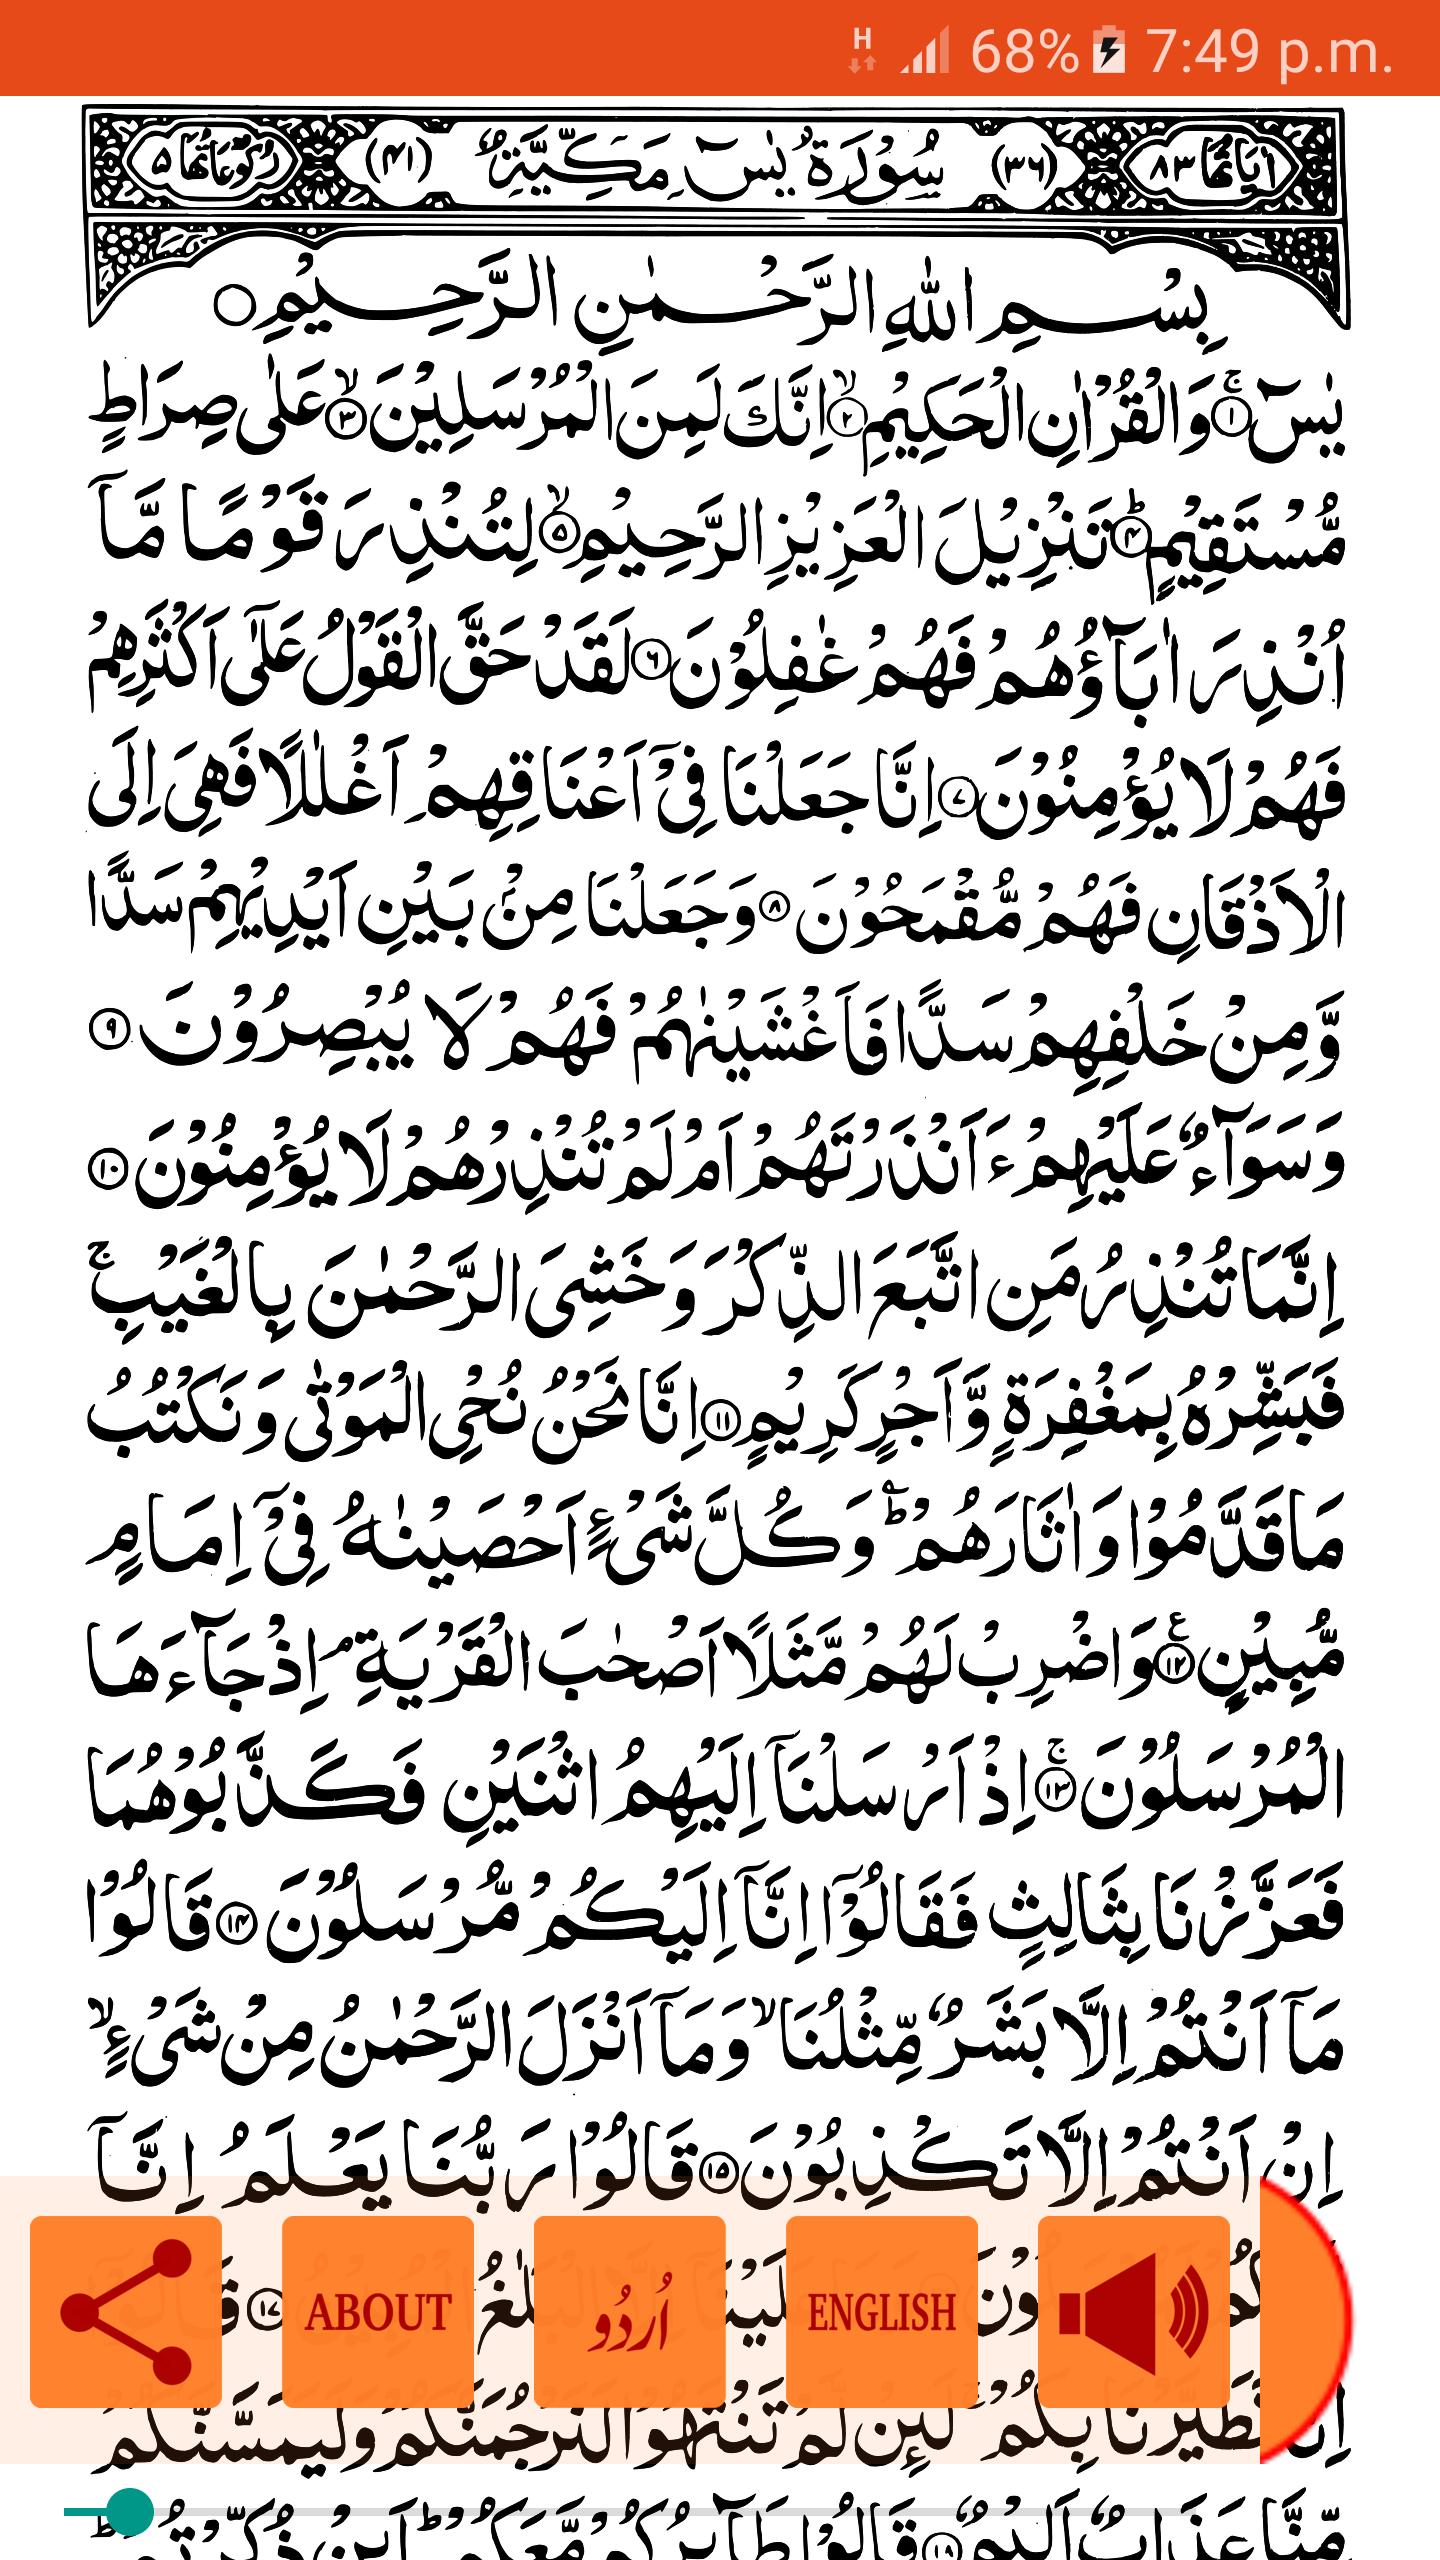 H 68% 7:49 p.m.
اٰيَاتُهَا ٨٣ (٣٦) سُوْرَةُ يٰسٓ مَكِّيَّةٌ (٤١) رُكُوْعَاتُهَا ٥
بِسْمِ اللّٰهِ الرَّحْمٰنِ الرَّحِيْمِ ○
يٰسٓ ۚ﴿١﴾ وَالْقُرْاٰنِ الْحَكِيْمِ ۙ﴿٢﴾ اِنَّكَ لَمِنَ الْمُرْسَلِيْنَ ۙ﴿٣﴾ عَلٰى صِرَاطٍ
مُّسْتَقِيْمٍ ؕ﴿٤﴾ تَنْزِيْلَ الْعَزِيْزِ الرَّحِيْمِ ۙ﴿٥﴾ لِتُنْذِرَ قَوْمًا مَّاۤ
اُنْذِرَ اٰبَآؤُهُمْ فَهُمْ غٰفِلُوْنَ ﴿٦﴾ لَقَدْ حَقَّ الْقَوْلُ عَلٰۤى اَكْثَرِهِمْ
فَهُمْ لَا يُؤْمِنُوْنَ ﴿٧﴾ اِنَّا جَعَلْنَا فِيْۤ اَعْنَاقِهِمْ اَغْلٰلًا فَهِيَ اِلَى
الْاَذْقَانِ فَهُمْ مُّقْمَحُوْنَ ﴿٨﴾ وَجَعَلْنَا مِنْۢ بَيْنِ اَيْدِيْهِمْ سَدًّا
وَّمِنْ خَلْفِهِمْ سَدًّا فَاَغْشَيْنٰهُمْ فَهُمْ لَا يُبْصِرُوْنَ ﴿٩﴾
وَسَوَآءٌ عَلَيْهِمْ ءَاَنْذَرْتَهُمْ اَمْ لَمْ تُنْذِرْهُمْ لَا يُؤْمِنُوْنَ ﴿١٠﴾
اِنَّمَا تُنْذِرُ مَنِ اتَّبَعَ الذِّكْرَ وَخَشِيَ الرَّحْمٰنَ بِالْغَيْبِ ۚ
فَبَشِّرْهُ بِمَغْفِرَةٍ وَّاَجْرٍ كَرِيْمٍ ﴿١١﴾ اِنَّا نَحْنُ نُحْيِ الْمَوْتٰى وَنَكْتُبُ
مَا قَدَّمُوْا وَاٰثَارَهُمْ ؕ وَكُلَّ شَيْءٍ اَحْصَيْنٰهُ فِيْۤ اِمَامٍ
مُّبِيْنٍ ﴿١٢﴾ وَاضْرِبْ لَهُمْ مَّثَلًا اَصْحٰبَ الْقَرْيَةِ ۘ اِذْ جَآءَهَا
الْمُرْسَلُوْنَ ۚ﴿١٣﴾ اِذْ اَرْسَلْنَاۤ اِلَيْهِمُ اثْنَيْنِ فَكَذَّبُوْهُمَا
فَعَزَّزْنَا بِثَالِثٍ فَقَالُوْۤا اِنَّاۤ اِلَيْكُمْ مُّرْسَلُوْنَ ﴿١٤﴾ قَالُوْا
مَاۤ اَنْتُمْ اِلَّا بَشَرٌ مِّثْلُنَا ۙ وَمَاۤ اَنْزَلَ الرَّحْمٰنُ مِنْ شَيْءٍ ۙ
اِنْ اَنْتُمْ اِلَّا تَكْذِبُوْنَ ﴿١٥﴾ قَالُوْا رَبُّنَا يَعْلَمُ اِنَّاۤ
﴿١٧﴾
ABOUT اُردُو ENGLISH
بِكُمْ ۚ لَئِنْ لَّمْ تَنْتَهُوْا لَنَرْجُمَنَّكُمْ وَلَيَمَسَّنَّكُمْ
مِّنَّا عَذَابٌ اَلِيْمٌ ﴿١٨﴾ قَالُوْا طَآئِرُكُمْ مَّعَكُمْ ؕ اَئِنْ ذُكِّرْتُمْ ؕ